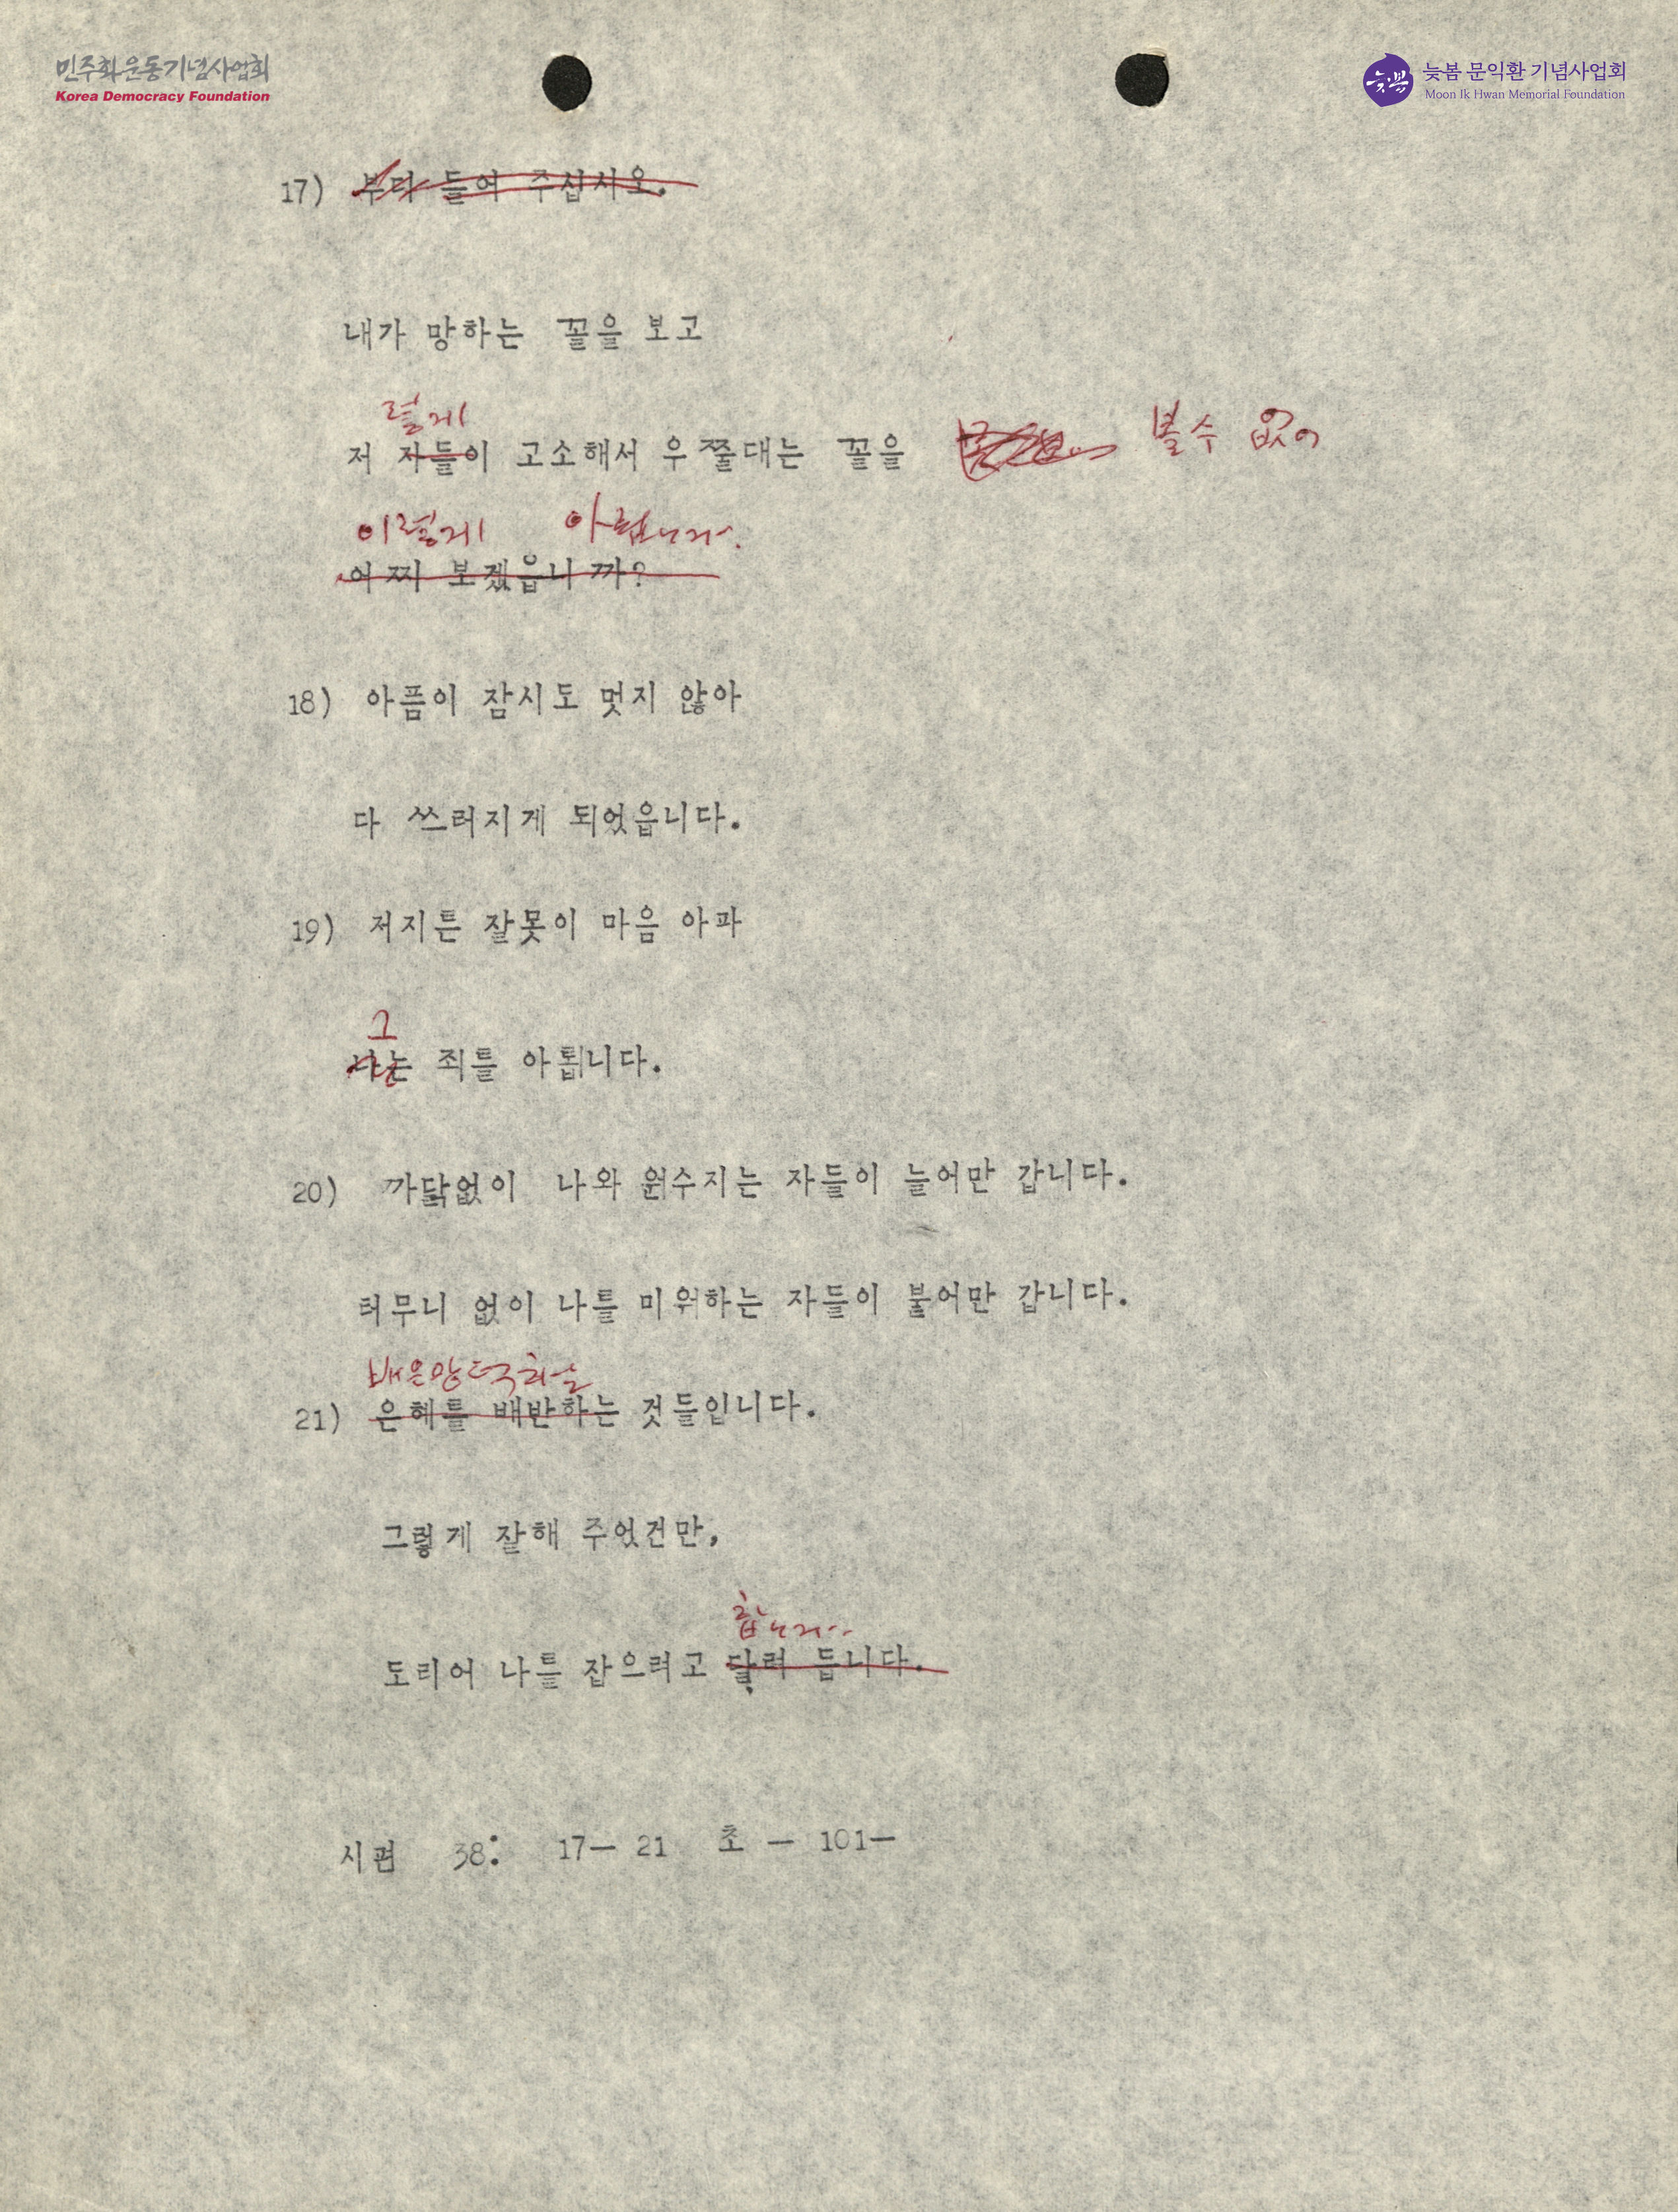 민주화운동기념사업회
Korea Democracy Foundation
늦봄
늦봄 문익환 기념사업회
Moon Ik Hwan Memorial Foundation
17) 부디 들어 주십시오.
내가 망하는 꼴을 보고
렇게
저 자들이 고소해서 우쭐대는 꼴을 볼수 없어
이렇게 아뢉니다.
어찌 보겠읍니까?
18) 아픔이 잠시도 멎지 않아
다 쓰러지게 되었읍니다.
19) 저지른 잘못이 마음 아파
그
나는 죄를 아룁니다.
20) 까닭없이 나와 원수지는 자들이 늘어만 갑니다.
터무니 없이 나를 미워하는 자들이 불어만 갑니다.
배은망덕하는
21) 은혜를 배반하는 것들입니다.
그렇게 잘해 주었건만,
합니다.
도리어 나를 잡으려고 달려 듭니다.
시편 38: 17- 21 초 - 101-